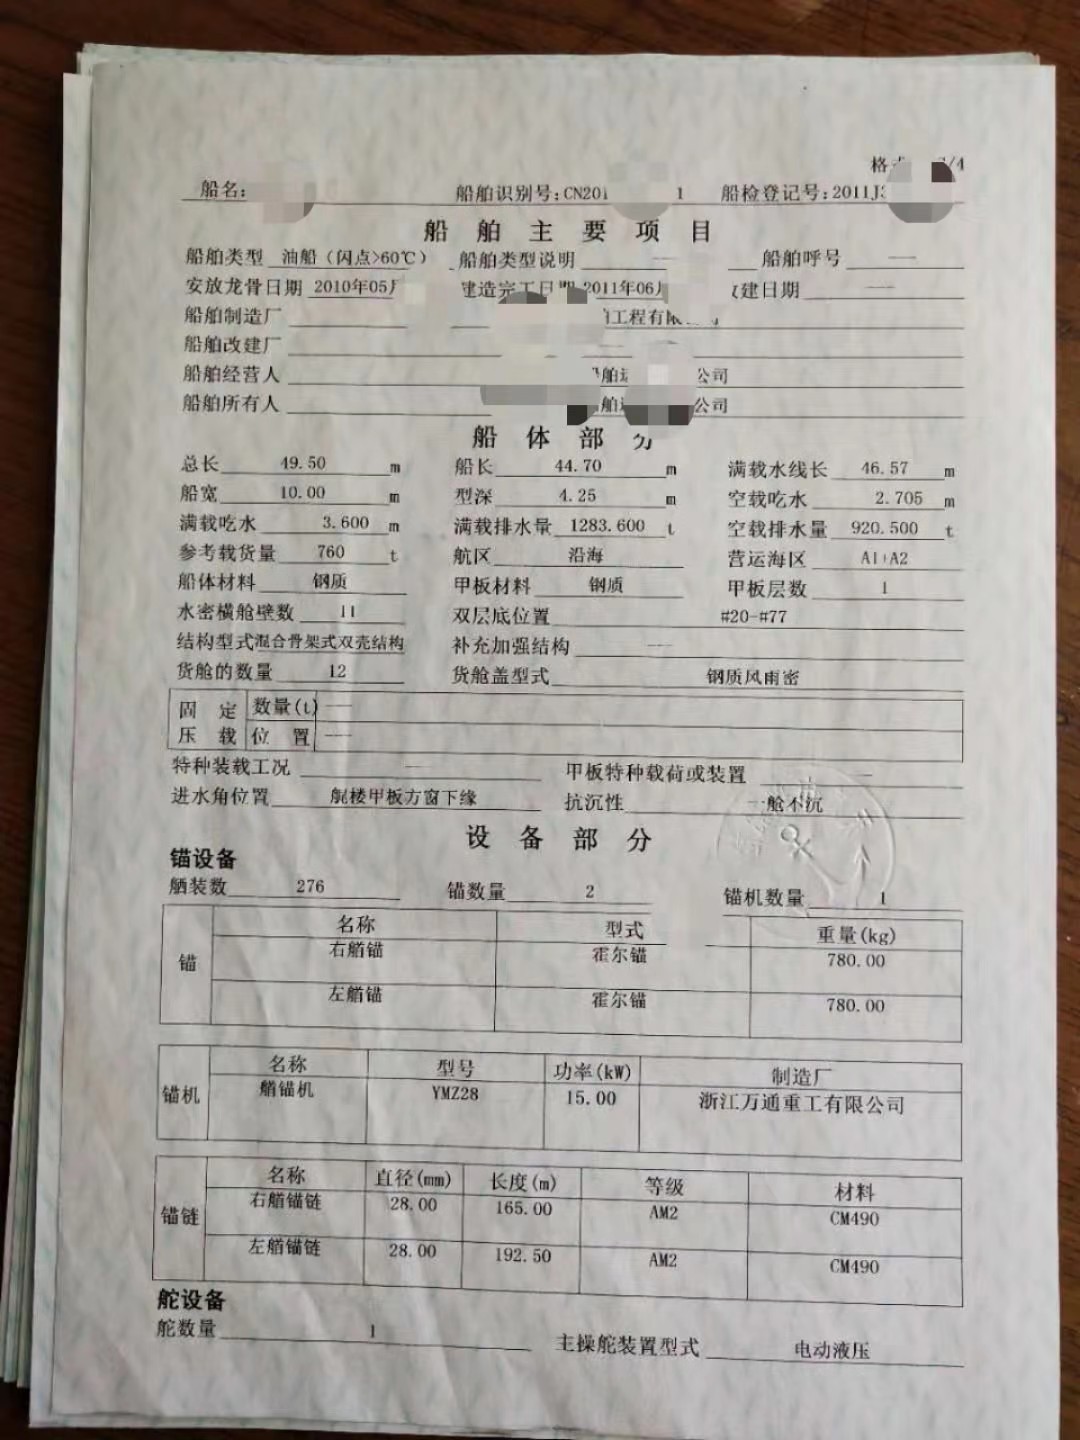 格 /4
船名: 船舶识别号:CN201 1 船检登记号:2011J
船舶主要项目
船舶类型 油船（闪点>60℃） 船舶类型说明 — 船舶呼号 —
安放龙骨日期 2010年05月 建造完工日期 2011年06月 改建日期 —
船舶制造厂 船舶工程有限公司
船舶改建厂 —
船舶经营人 船舶 公司
船舶所有人 船舶 公司
船体部分
总长 49.50 m 船长 44.70 m 满载水线长 46.57 m
船宽 10.00 m 型深 4.25 m 空载吃水 2.705 m
满载吃水 3.600 m 满载排水量 1283.600 t 空载排水量 920.500 t
参考载货量 760 t 航区 沿海 营运海区 A1+A2
船体材料 钢质 甲板材料 钢质 甲板层数 1
水密横舱壁数 11 双层底位置 #20-#77
结构型式 混合骨架式双壳结构 补充加强结构 —
货舱的数量 12 货舱盖型式 钢质风雨密
固定 数量(t) —
压载 位置 —
特种装载工况 — 甲板特种载荷或装置 —
进水角位置 艉楼甲板方窗下缘 抗沉性 一舱不沉
设备部分
锚设备
舾装数 276 锚数量 2 锚机数量 1
锚 名称 型式 重量(kg)
右艏锚 霍尔锚 780.00
左艏锚 霍尔锚 780.00
锚机 名称 型号 功率(kW) 制造厂
艏锚机 YMZ28 15.00 浙江万通重工有限公司
锚链 名称 直径(mm) 长度(m) 等级 材料
右艏锚链 28.00 165.00 AM2 CM490
左艏锚链 28.00 192.50 AM2 CM490
舵设备
舵数量 1 主操舵装置型式 电动液压